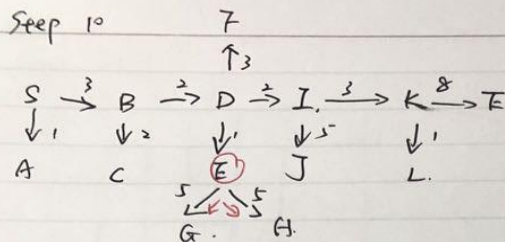 Step 10
F
↑3
S →3 B →2 D →2 I. →3 K →8 E
↓1 ↓2 ↓1 ↓5 ↓1
A C E J L.
5 5
G. H.